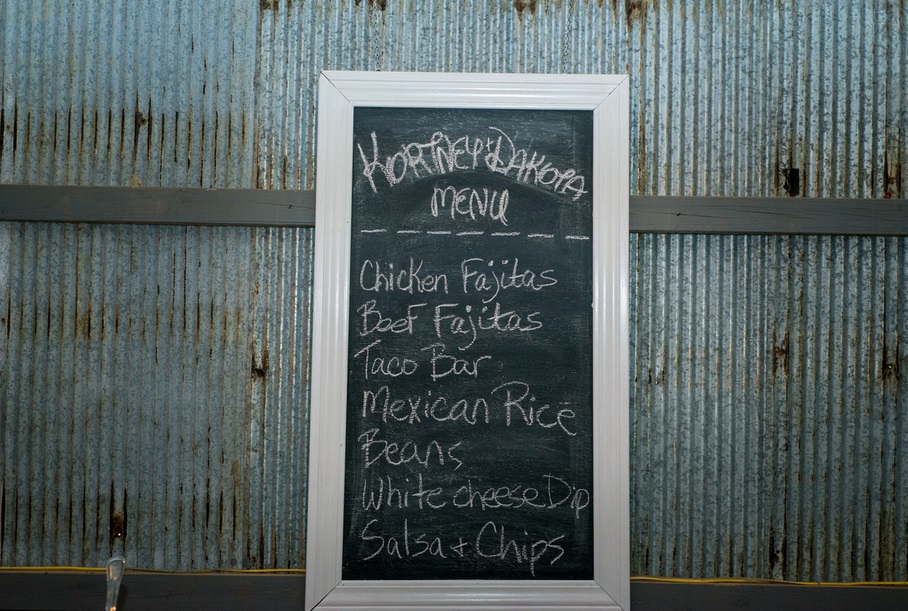 KORTNEY + DAKOTA
MENU
Chicken Fajitas
Beef Fajitas
Taco Bar
Mexican Rice
Beans
White cheese Dip
Salsa + Chips